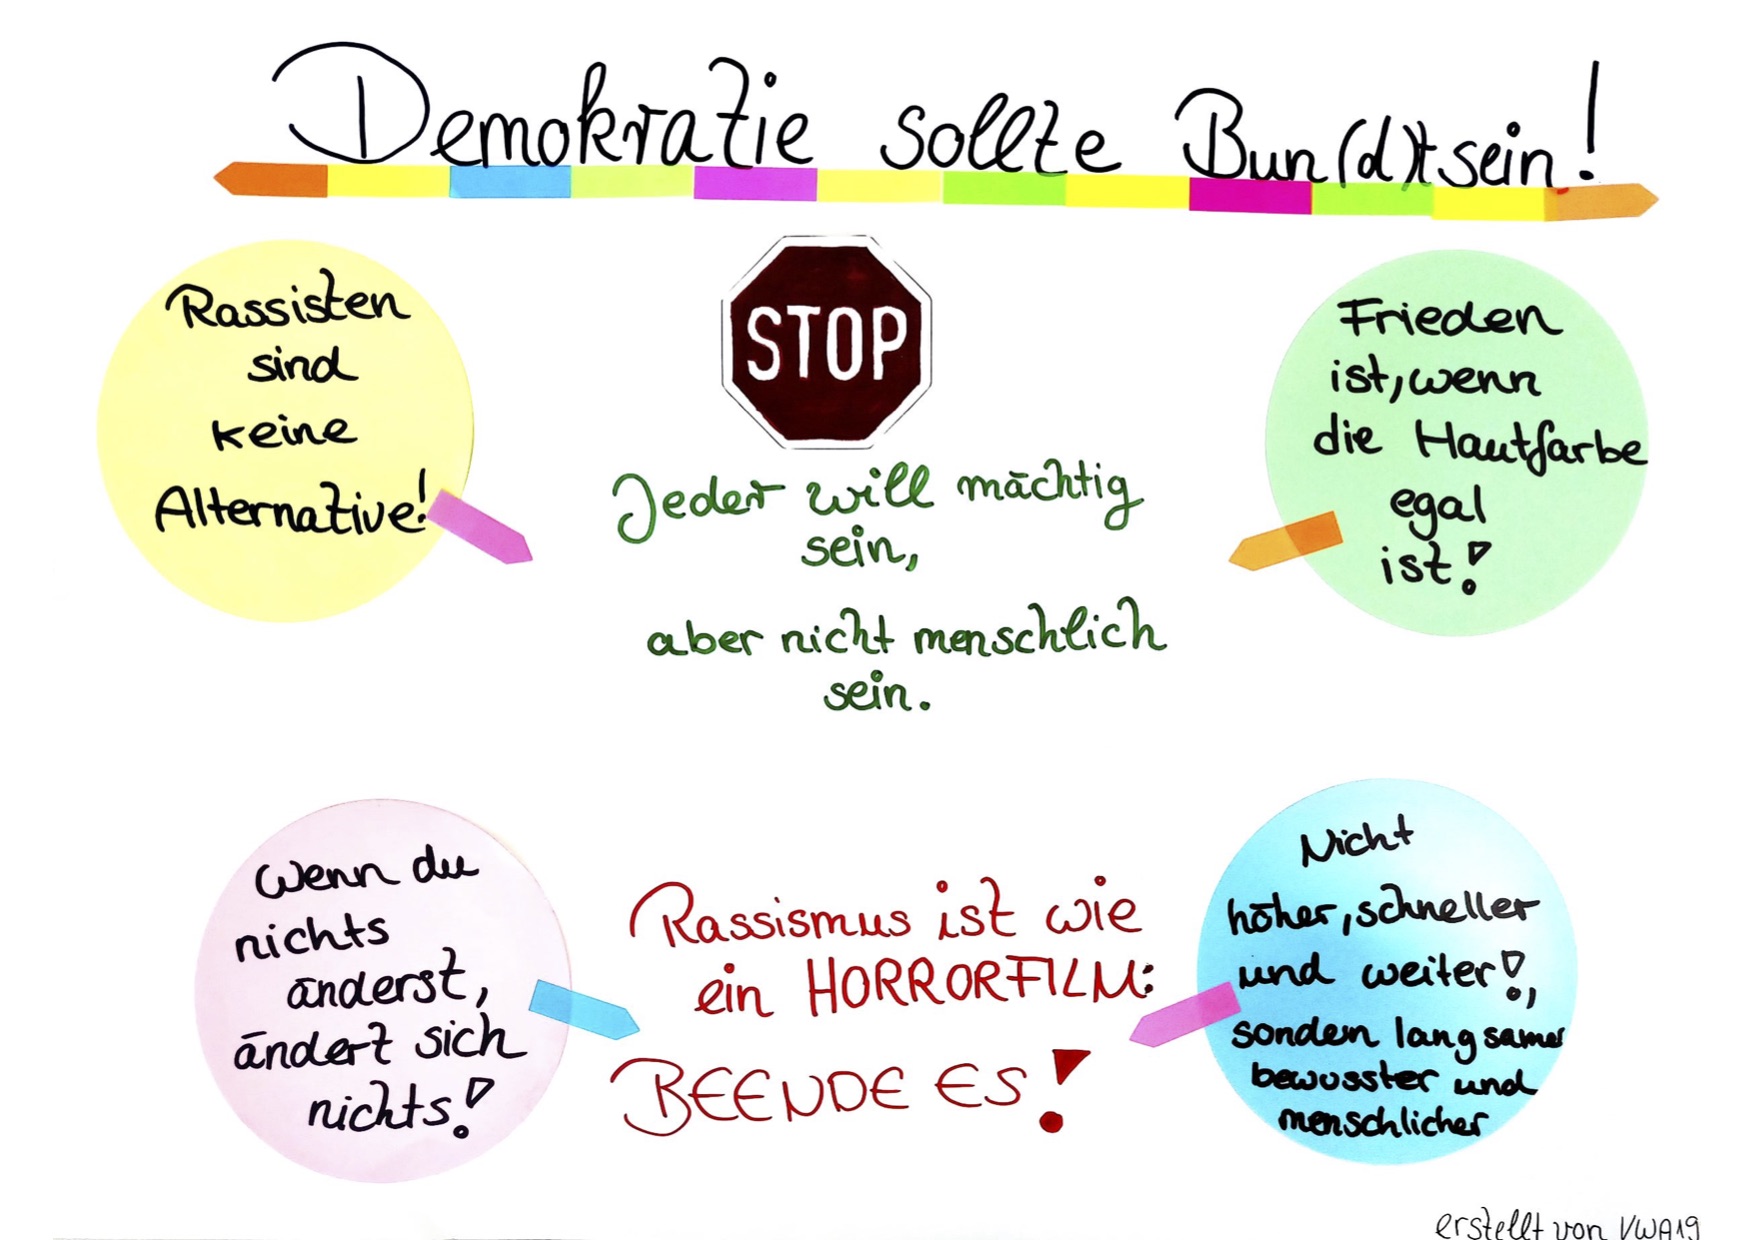 Demokratie sollte Bun(d)t sein!
Rassisten
sind
keine
Alternative!
STOP
Jeder will mächtig
sein,
aber nicht menschlich
sein.
Frieden
ist, wenn
die Hautfarbe
egal
ist!
Wenn du
nichts
änderst,
ändert sich
nichts!
Rassismus ist wie
ein HORRORFILM:
BEENDE ES!
Nicht
höher, schneller
und weiter!,
sondern langsamer
bewusster und
menschlicher
erstellt von VWA19